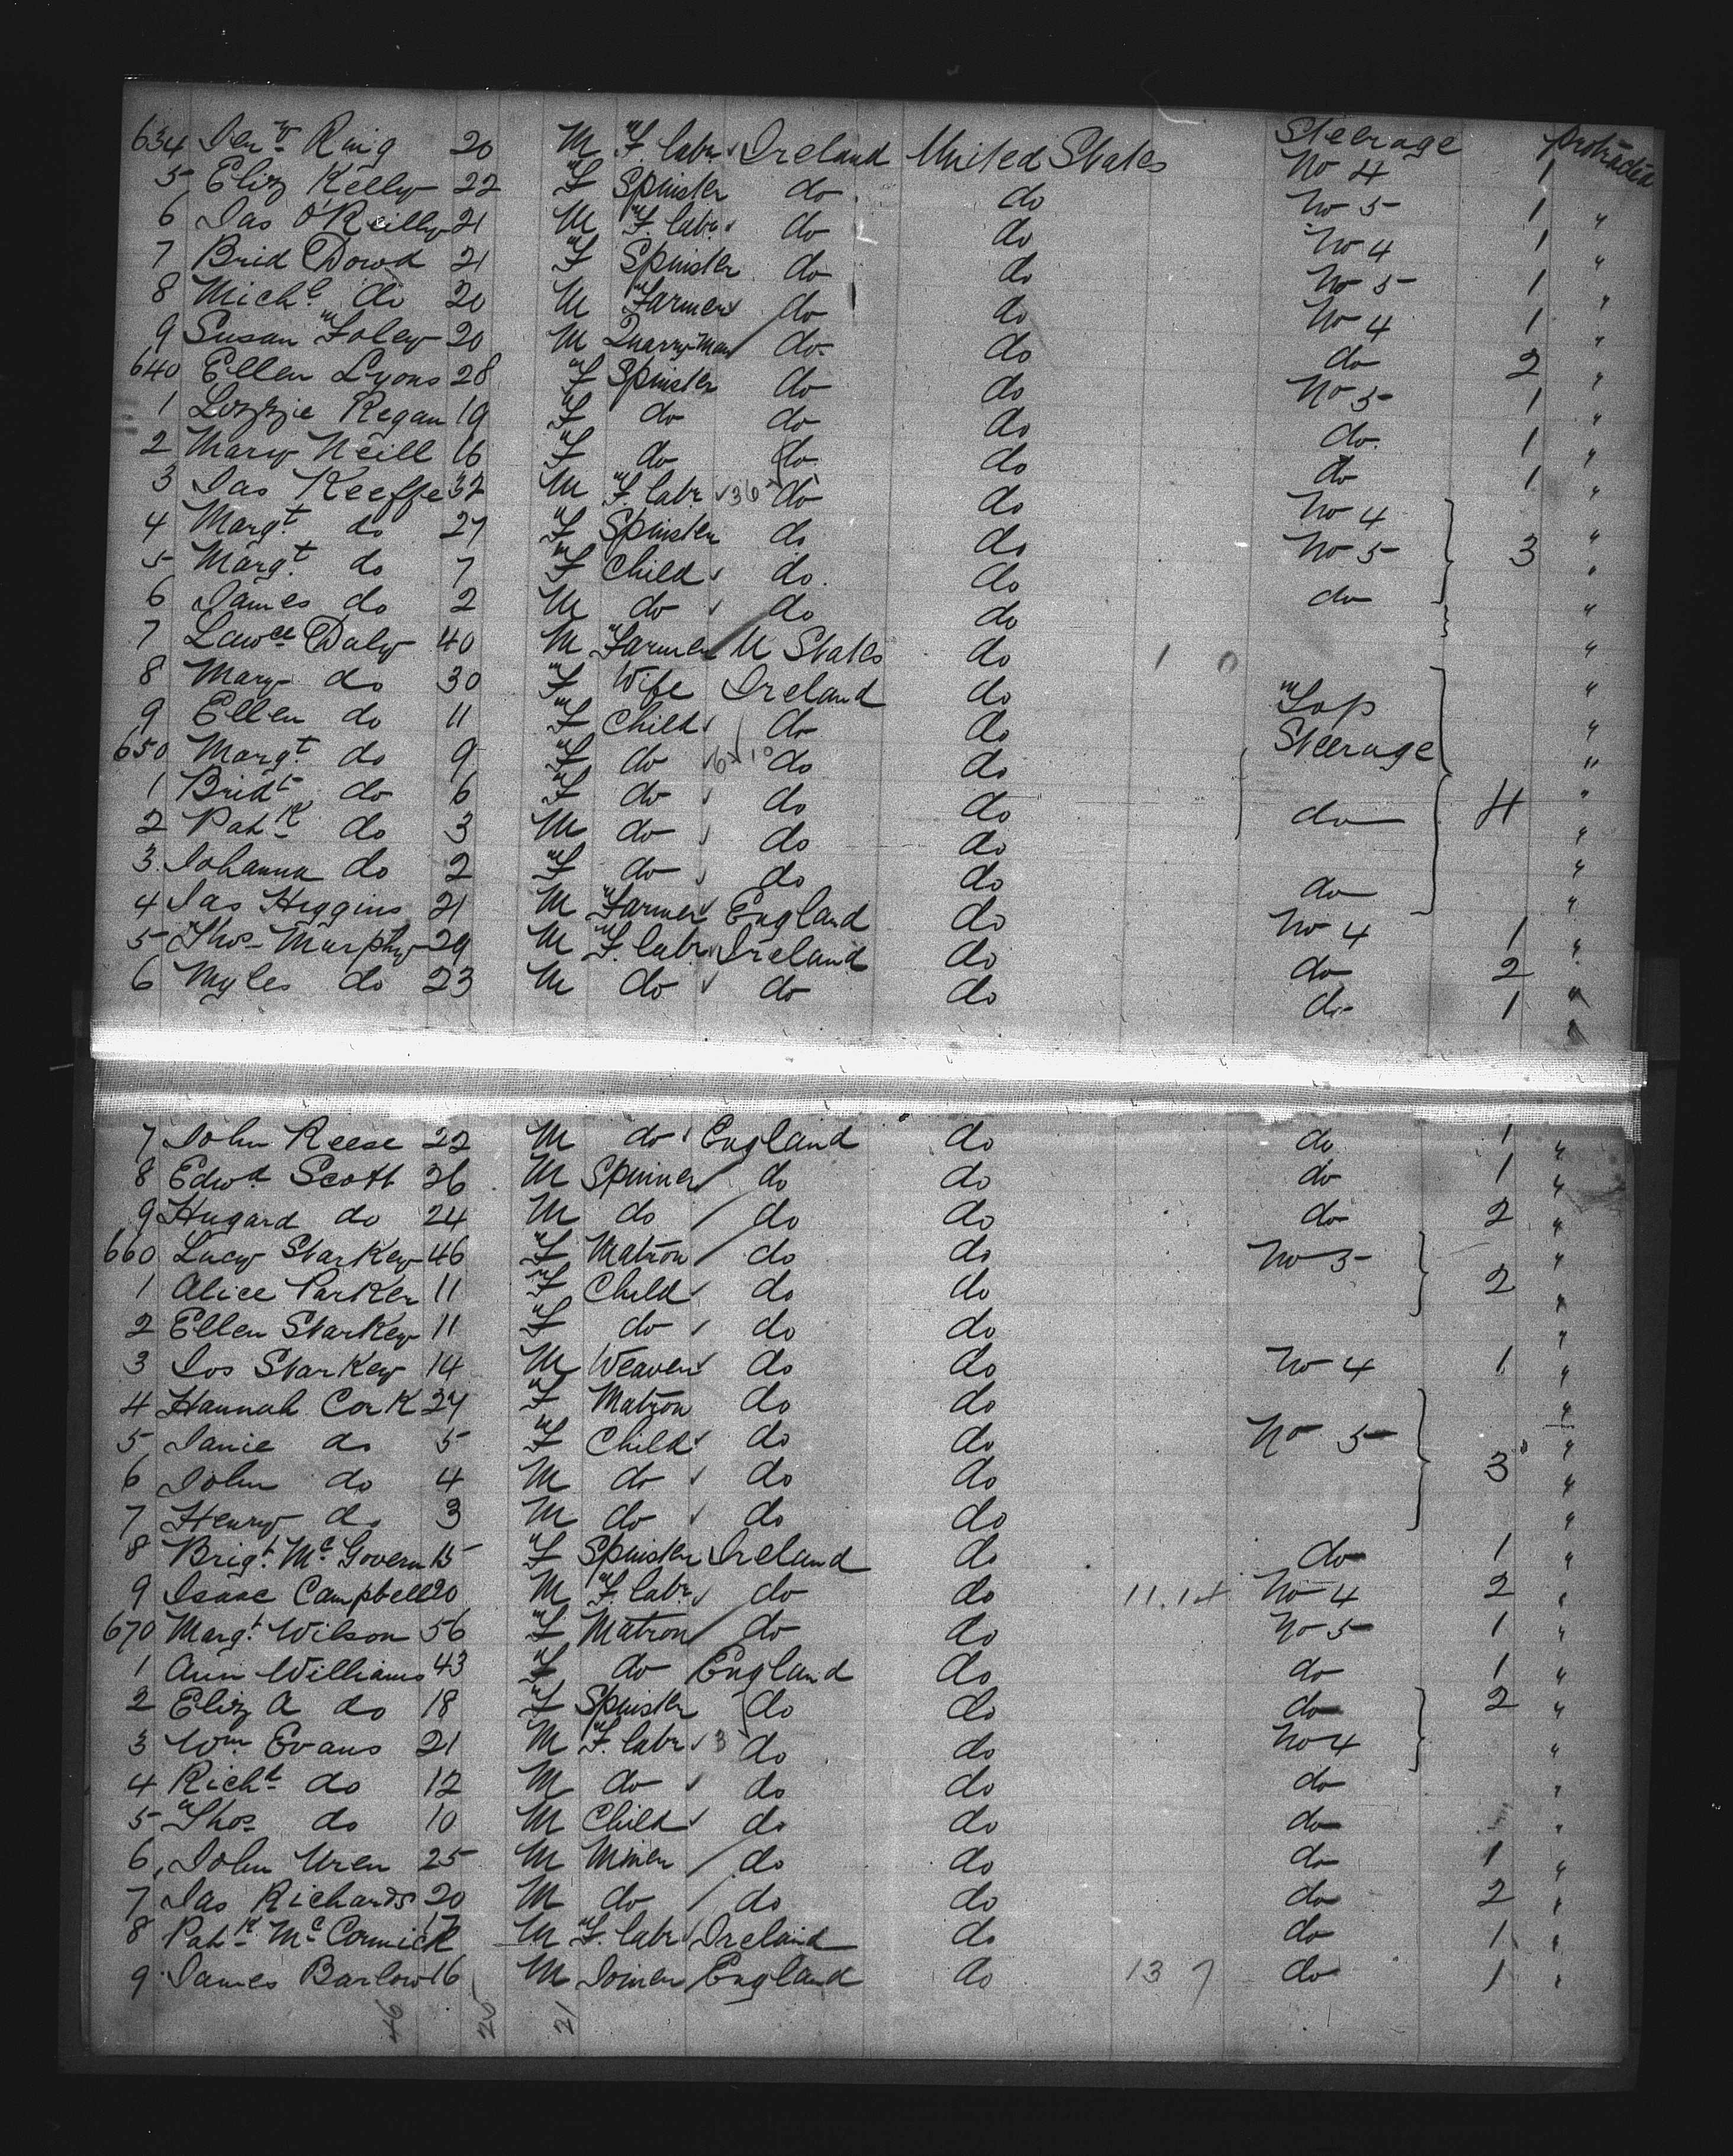 634 Jer Ring 20 M F. labr Ireland United States Steerage No 4 1 protracted
5 Eliz Kelly 22 F Spinster do do No 5 1 "
6 Jas O'Reilly 21 M F. labr do do No 4 1 "
7 Brid Dowd 21 F Spinster do do No 5 1 "
8 Michl do 20 M Farmer do do No 4 1 "
9 Susan Foley 20 M Quarryman do do do 2 "
640 Ellen Lyons 28 F Spinster do do No 5 1 "
1 Lizzie Regan 19 F do do do do 1 "
2 Mary Neill 16 F do do do do 1 "
3 Jas Keeffe 32 M F. labr 36 do do No 4 "
4 Margt do 27 F Spinster do do No 5 3 "
5 Margt do 7 F Child do do do "
6 James do 2 M do do do "
7 Lawce Daly 40 M Farmer U States do 1 0 "
8 Mary do 30 F Wife Ireland do Top "
9 Ellen do 11 F Child do do Steerage "
650 Margt do 9 F do do do "
1 Bridt do 6 F do do do do 4 "
2 Patk do 3 M do do do "
3 Johanna do 2 F do do do do "
4 Jas Higgins 21 M Farmer England do No 4 1 "
5 Thos Murphy 29 M F. labr Ireland do do 2 "
6 Myles do 23 M do do do do 1 "
7 John Reese 22 M do England do do 1 "
8 Edwd Scott 26 M Spinner do do do 1 "
9 Hugard do 24 M do do do do 2 "
660 Lucy Starkey 46 F Matron do do No 5 "
1 Alice Parker 11 F Child do do 2 "
2 Ellen Starkey 11 F do do do "
3 Jos Starkey 14 M Weaver do do No 4 1 "
4 Hannah Cork 27 F Matron do do "
5 Janie do 5 F Child do do No 5 "
6 John do 4 M do do do 3 "
7 Henry do 3 M do do do "
8 Brigt McGovern 15 F Spinster Ireland do do 1 "
9 Isaac Campbell 20 M F. labr do do 11.14 No 4 2 "
670 Margt Wilson 56 F Matron do do No 5 1 "
1 Ann Williams 43 F do England do do 1 "
2 Eliz A do 18 F Spinster do do do 2 "
3 Wm Evans 21 M F. labr 3 do do No 4 "
4 Richd do 12 M do do do do "
5 Thos do 10 M Child do do do "
6 John Uren 25 M Miner do do do 1 "
7 Jas Richards 20 M do do do do 2 "
8 Patk McCormick 17 M F. labr Ireland do do 1 "
9 James Barlow 16 M Joiner England do 13 7 do 1 "
46 25 21